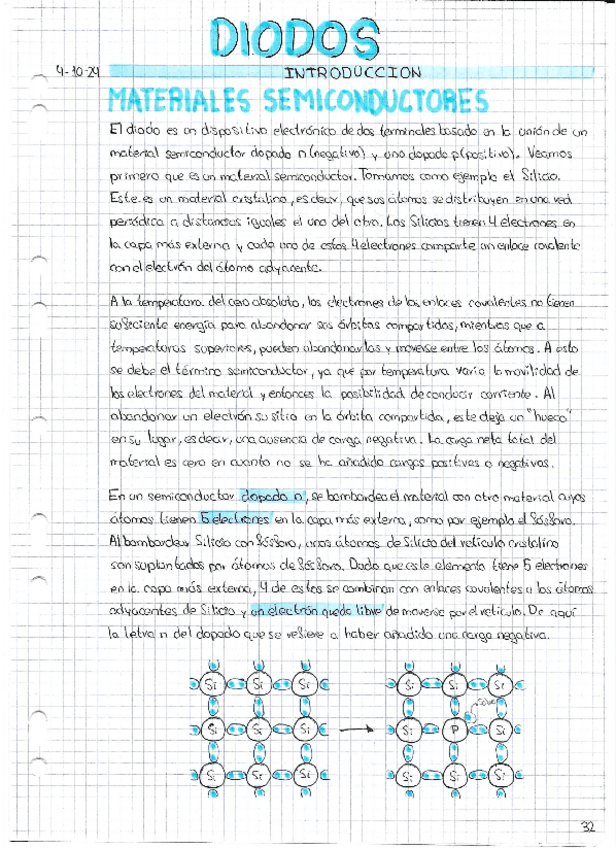 DIODOS
4-10-24 INTRODUCCION
MATERIALES SEMICONDUCTORES
El diodo es un dispositivo electrónico de dos terminales basado en la unión de un
material semiconductor dopado n (negativo) y uno dopado p (positivo). Veamos
primero que es un material semiconductor. Tomamos como ejemplo el Silicio.
Este es un material cristalino, es decir, que sus átomos se distribuyen en una red
periódica a distancias iguales el uno del otro. Los Silicios tienen 4 electrones en
la capa más externa y cada uno de estos 4 electrones comparte un enlace covalente
con el electrón del átomo adyacente.
A la temperatura del cero absoluto, los electrones de los enlaces covalentes no tienen
suficiente energía para abandonar sus órbitas compartidas, mientras que a
temperaturas superiores, pueden abandonarlas y moverse entre los átomos. A esto
se debe el término semiconductor, ya que por temperatura varía la movilidad de
los electrones del material y entonces la posibilidad de conducir corriente. Al
abandonar un electrón su sitio en la órbita compartida, este deja un "hueco"
en su lugar, es decir, una ausencia de carga negativa. La carga neta total del
material es cero en cuanto no se ha añadido cargas positivas o negativas.
En un semiconductor dopado n, se bombardea el material con otro material cuyos
átomos tienen 5 electrones en la capa más externa, como por ejemplo el fósforo.
Al bombardear Silicio con fósforo, unos átomos de Silicio del retículo cristalino
son suplantados por átomos de fósforo. Dado que este elemento tiene 5 electrones
en la capa más externa, 4 de estos se combinan con enlaces covalentes a los átomos
adyacentes de Silicio y un electrón queda libre de moverse por el retículo. De aquí
la letra n del dopado que se refiere a haber añadido una carga negativa.
Si Si Si Si Si Si
Si Si Si Si P Si
Si Si Si Si Si Si
32